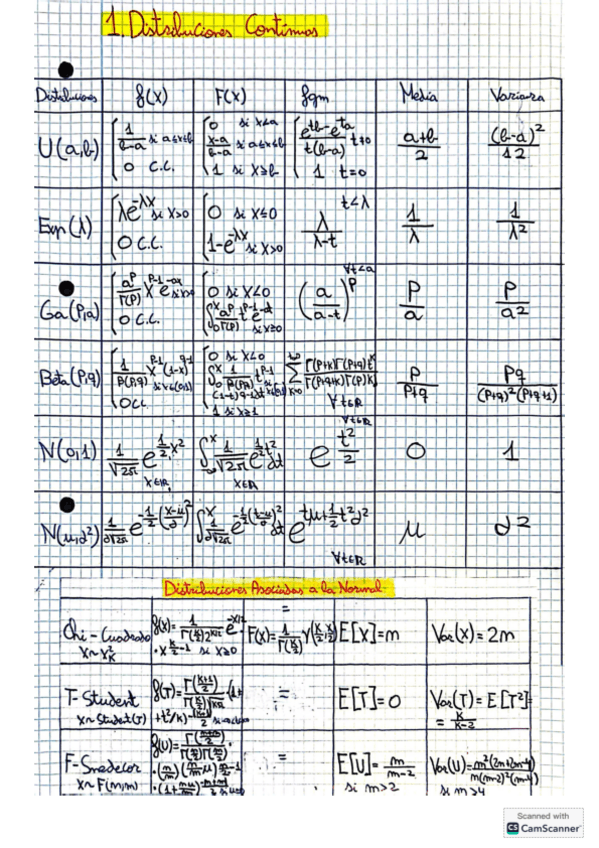 1. Distribuciones Continuas
Distribuciones f(x) F(x) fgm Media Varianza
U(a,b) { 1/(b-a) si a≤x≤b ; 0 c.c. { 0 si x<a ; (x-a)/(b-a) si a≤x≤b ; 1 si x≥b { (e^tb-e^ta)/(t(b-a)) t≠0 ; 1 t=0 (a+b)/2 (b-a)²/12
Exp(λ) { λe^-λx si x>0 ; 0 c.c. { 0 si x≤0 ; 1-e^-λx si x>0 λ/(λ-t) t<λ 1/λ 1/λ²
Ga(p,a) { a^p/Γ(p) x^p-1 e^-ax si x>0 ; 0 c.c. { 0 si x<0 ; ∫₀^x a^p/Γ(p) t^p-1 e^-at si x≥0 (a/(a-t))^p ∀t<a p/a p/a²
Beta(p,q) { 1/β(p,q) x^p-1 (1-x)^q-1 si x∈(0,1) ; 0 cc { 0 si x<0 ; ∫₀^x 1/β(p,q) t^p-1 (1-t)^q-1 dt ; 1 si x≥1 Σ k=0 ∞ Γ(p+k)Γ(p+q)t^k/Γ(p+q+k)Γ(p)k! ∀t∈R p/(p+q) pq/((p+q)²(p+q+1))
N(0,1) 1/√2π e^-½x² x∈R ∫ x 1/√2π e^-½t² dt x∈R e^t²/2 ∀t∈R 0 1
N(μ,σ²) 1/σ√2π e^-½((x-μ)/σ)² ∫ x 1/σ√2π e^-½((t-μ)/σ)² dt e^tμ+½t²σ² ∀t∈R μ σ²
Distribuciones Asociadas a la Normal
Chi-Cuadrado X~χ²_K f(x)= 1/(Γ(k/2)2^k/2) e^-x/2 · x^k/2-1 si x≥0 = F(x)= 1/Γ(k/2) γ(k/2, x/2) E[X]=m Var(X)=2m
T-Student X~Student(T) f(T)= Γ((k+1)/2)/(Γ(k/2)√kπ) · (1+t²/k)^-(k+1)/2 = E[T]=0 Var(T)=E[T²]= = k/(k-2)
F-Snedecor X~F(m,m) f(U)= = E[U]= m/(m-2) si m>2 Var(U)= si m>4
Scanned with
CS CamScanner